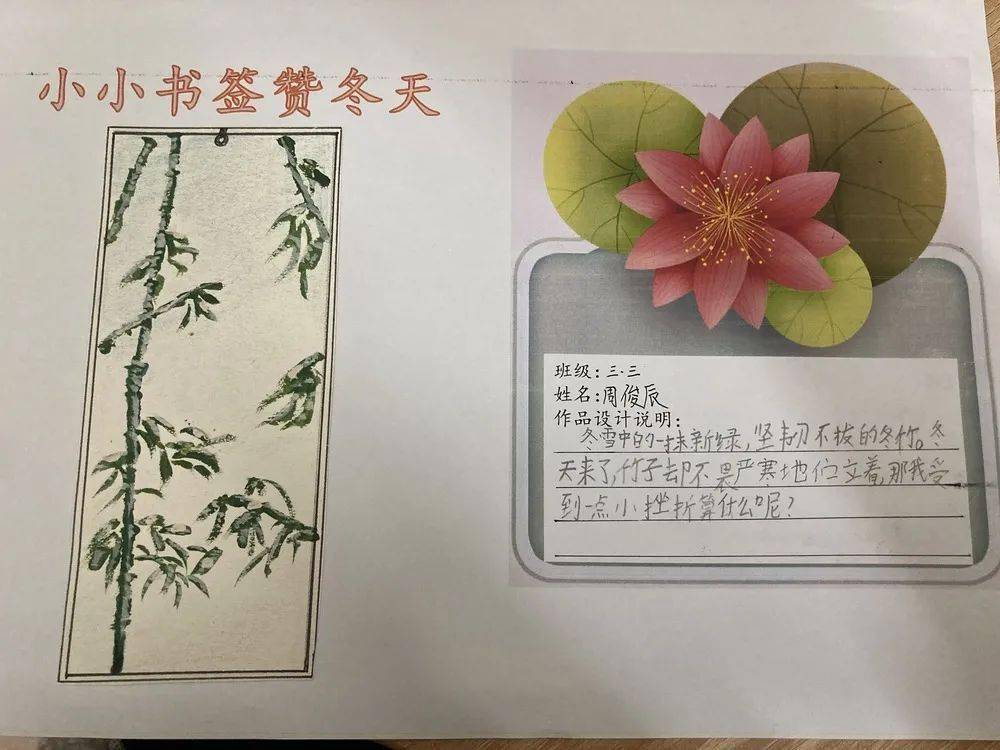 小小书签赞冬天
班级:三·三
姓名:周俊辰
作品设计说明:
冬雪中的一抹新绿,坚韧不拔的冬竹。冬
天来了,竹子却不畏严寒地伫立着,那我受
到一点小挫折算什么呢?